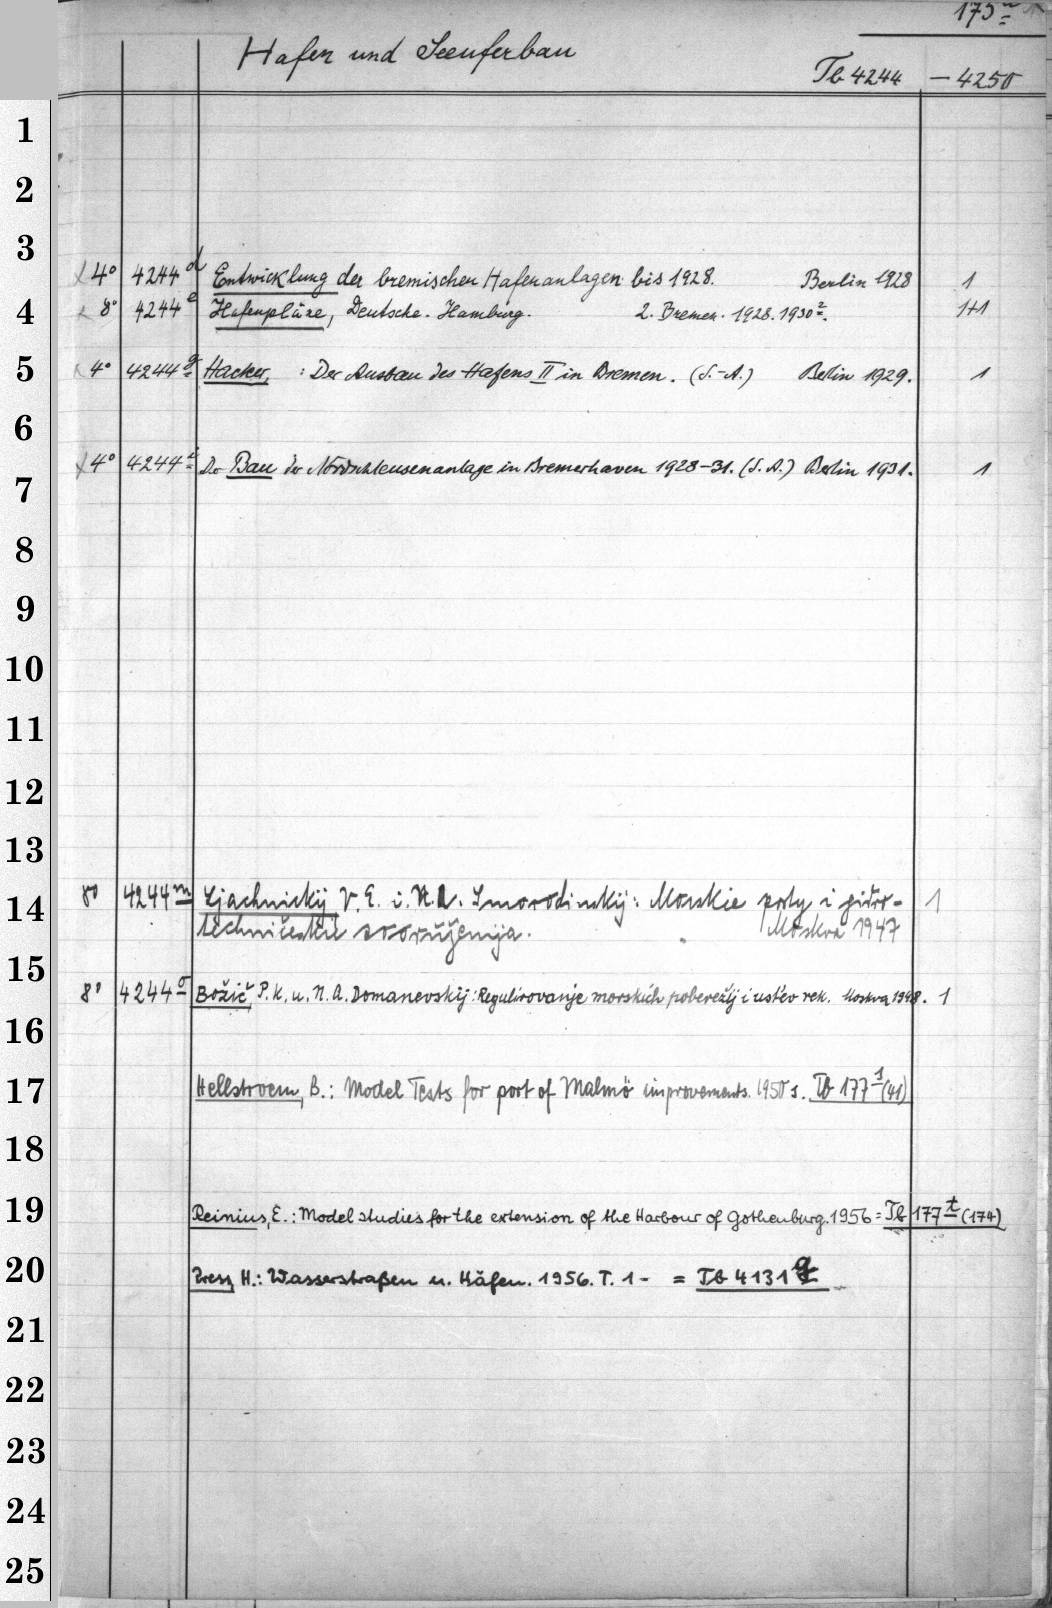 175
Hafen und Seeuferbau
Tb 4244 — 4250
1
2
3
4° 4244 d Entwicklung der bremischen Hafenanlagen bis 1928. Berlin 1928 1
4
8° 4244 e Hafenpläne, Deutsche. Hamburg. 2. Bremen. 1928. 1930². 1+1
5
4° 4244 g Hacker, : Der Ausbau des Hafens II in Bremen. (S.-A.) Berlin 1929. 1
6
4° 4244 i Der Bau der Nordschleusenanlage in Bremerhaven 1928-31. (S.A.) Berlin 1931. 1
7
8
9
10
11
12
13
14
8° 4244 m Ljachnickij V. E. i. N.A. Smorodinskij: Morskie porty i gidro- 1
techničeskie sooruženija. Moskva 1947
15
8° 4244 o Božič, P. K. u. N. A. Domanevskij: Regulirovanije morskich poberežij i ust'ev rek. Moskva 1948. 1
16
17
Hellstroem, B.: Model Tests for port of Malmö improvements. 1950 s. Tb 177 s (41)
18
19
Reinius, E.: Model studies for the extension of the Harbour of Gothenburg. 1956 = Tb 177 t (174)
20
Press, H.: Wasserstraßen u. Häfen. 1956. T. 1 - = Tb 4131 g
21
22
23
24
25